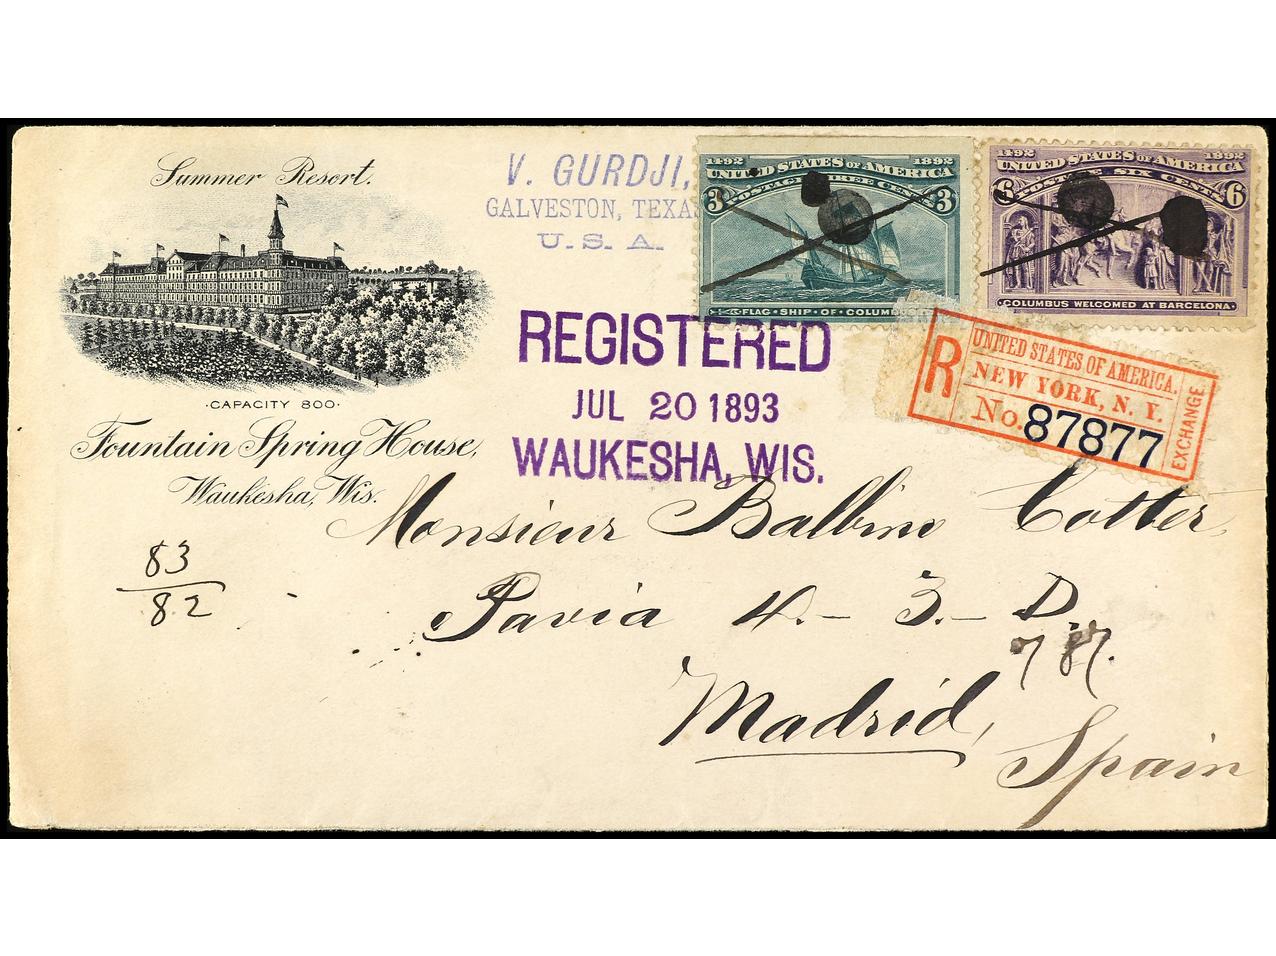 Summer Resort.
·CAPACITY 800·
Fountain Spring House,
Waukesha, Wis.
V. GURDJI,
GALVESTON, TEXAS
U. S. A.
1492 1892
UNITED STATES OF AMERICA
POSTAGE THREE CENTS
3 3
FLAG·SHIP·OF·COLUMBUS
1492 1892
UNITED STATES OF AMERICA
POSTAGE SIX CENTS
6 6
COLUMBUS WELCOMED AT BARCELONA
REGISTERED
JUL 20 1893
WAUKESHA, WIS.
R
UNITED STATES OF AMERICA.
NEW YORK, N. Y.
No. 87877
EXCHANGE
Monsieur Balbino Cotter,
Pavia 4.- 3.- D.
Madrid,
Spain
83
82
787.